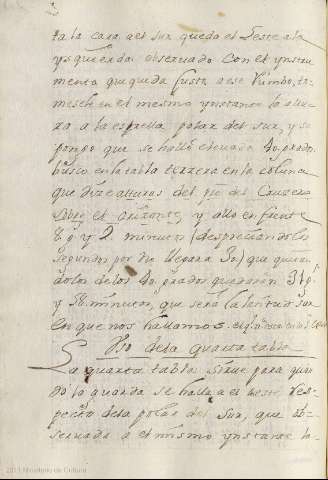 ta la cara a el sur queda el Leste a la
ysquierda. obseruado Con el ynstru
mento que queda fixsta a ese Rumbo, to
mesele en el mesmo ynstante la altu
ra, a la estrella polar del sur, y su
pongo que se halló eleuada 40, grados,
busco en la tabla terzera en la coluna
que dize alturas del pie del Cruzero
sobre el orizonte, y allo en frente
8 g y 2 minutos (despreciando los
segundos por no llegar a 30) que quitan
dolos de los 40, grados quedaron 31 g
y 58 minutos, que será la latitud sur
en que nos hallamos.
Vso de la quarta tabla
La quarta tabla sirue para quan
do la guarda se halla a el ueste res-
pecto de la polar del Sur, que ob-
seruada a el mismo ynstante la
2011 Ministerio de Cultura